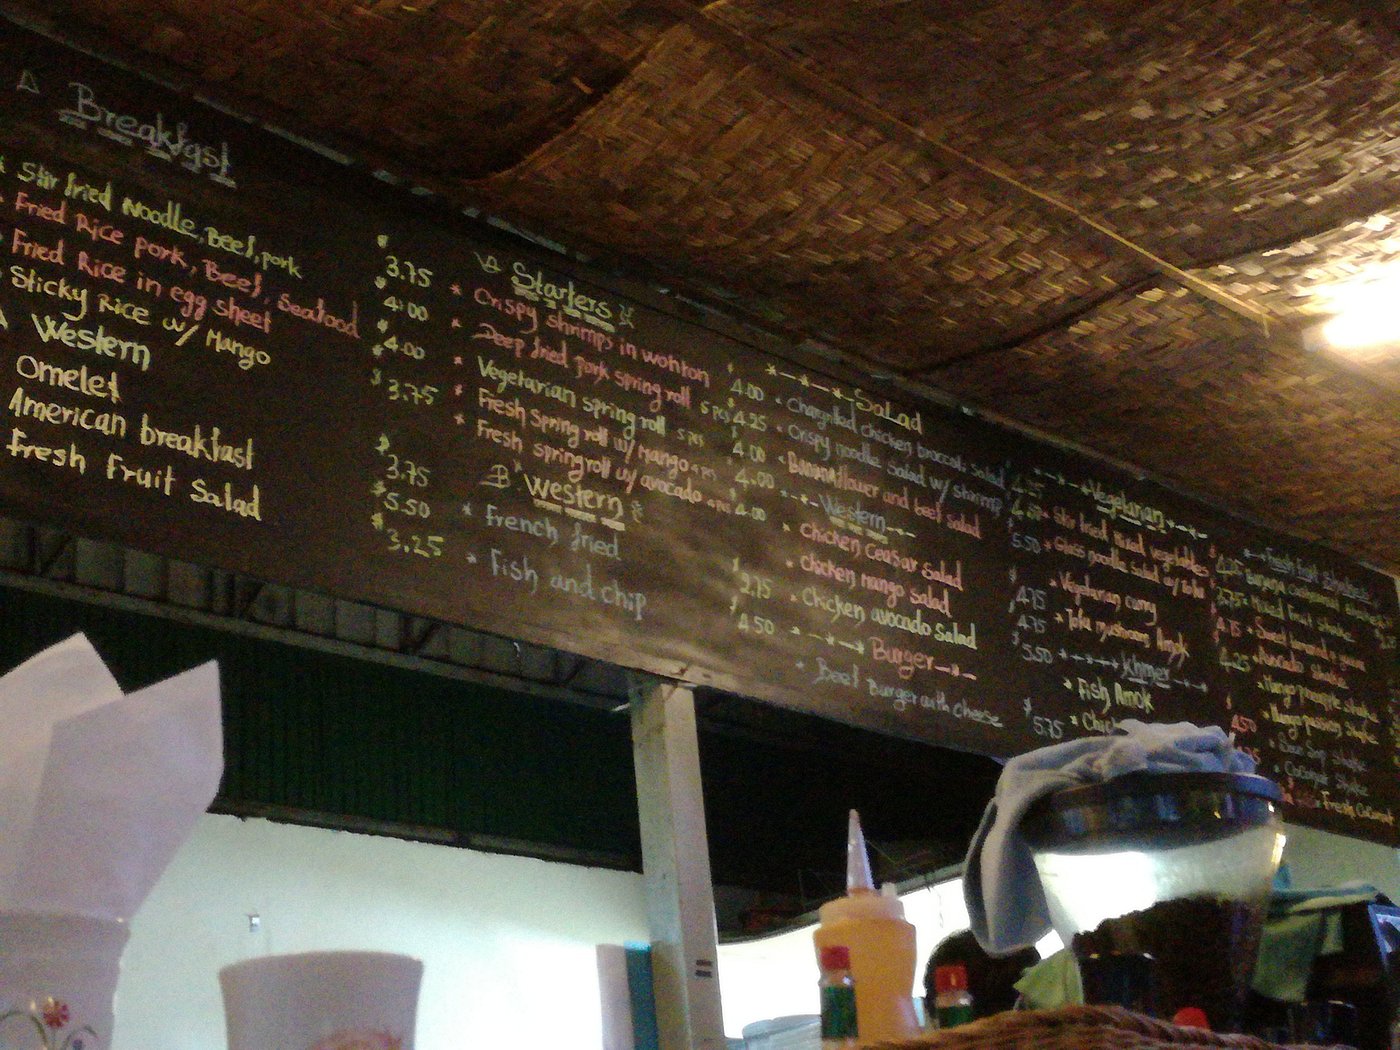 A Breakfast
Stir fried Noodle, Beef, pork
$ 3.75
Fried Rice pork, Beef, Seafood
$ 4.00
Fried Rice in egg sheet
$ 4.00
Sticky Rice w/ Mango
$ 3.75
Western
Omelet
$ 3.75
American breakfast
$ 5.50
Fresh Fruit Salad
$ 3.25
Starters
* Crispy shrimps in wonton
$ 4.00
* Deep fried pork spring roll 5 pcs
$ 4.25
* Vegetarian spring roll 5 pcs
$ 4.00
* Fresh Spring roll w/ mango 4 pcs
$ 4.00
* Fresh springroll w/ avocado 4 pcs
$ 4.00
B Western
* French fried
$ 2.75
* Fish and chip
$ 4.50
*-*-*-Salad
Chargrilled chicken broccoli salad
Crispy noodle salad w/ shrimp
flower and beef salad
$ 5.50
Western
* Chicken Ceasar Salad
$ 4.75
* Chicken mango Salad
$ 4.75
* Chicken avocado Salad
$ 5.50
Burger
* Beef Burger with cheese
$ 5.75
Vegetarian
* Stir fried mixed vegetables
* Glass noodle Salad w/ tofu
* Vegetarian curry
$ 4.75
* Tofu mushroom Amok
$ 4.25
Khmer
* Fish Amok
$ 4.50
Fresh Fruit Shakes
Mixed Fruit shake
Avocado shake
Mango pineapple shake
Mango passion shake
Sour Sop shake
Coconut Shake
Fresh Coconut